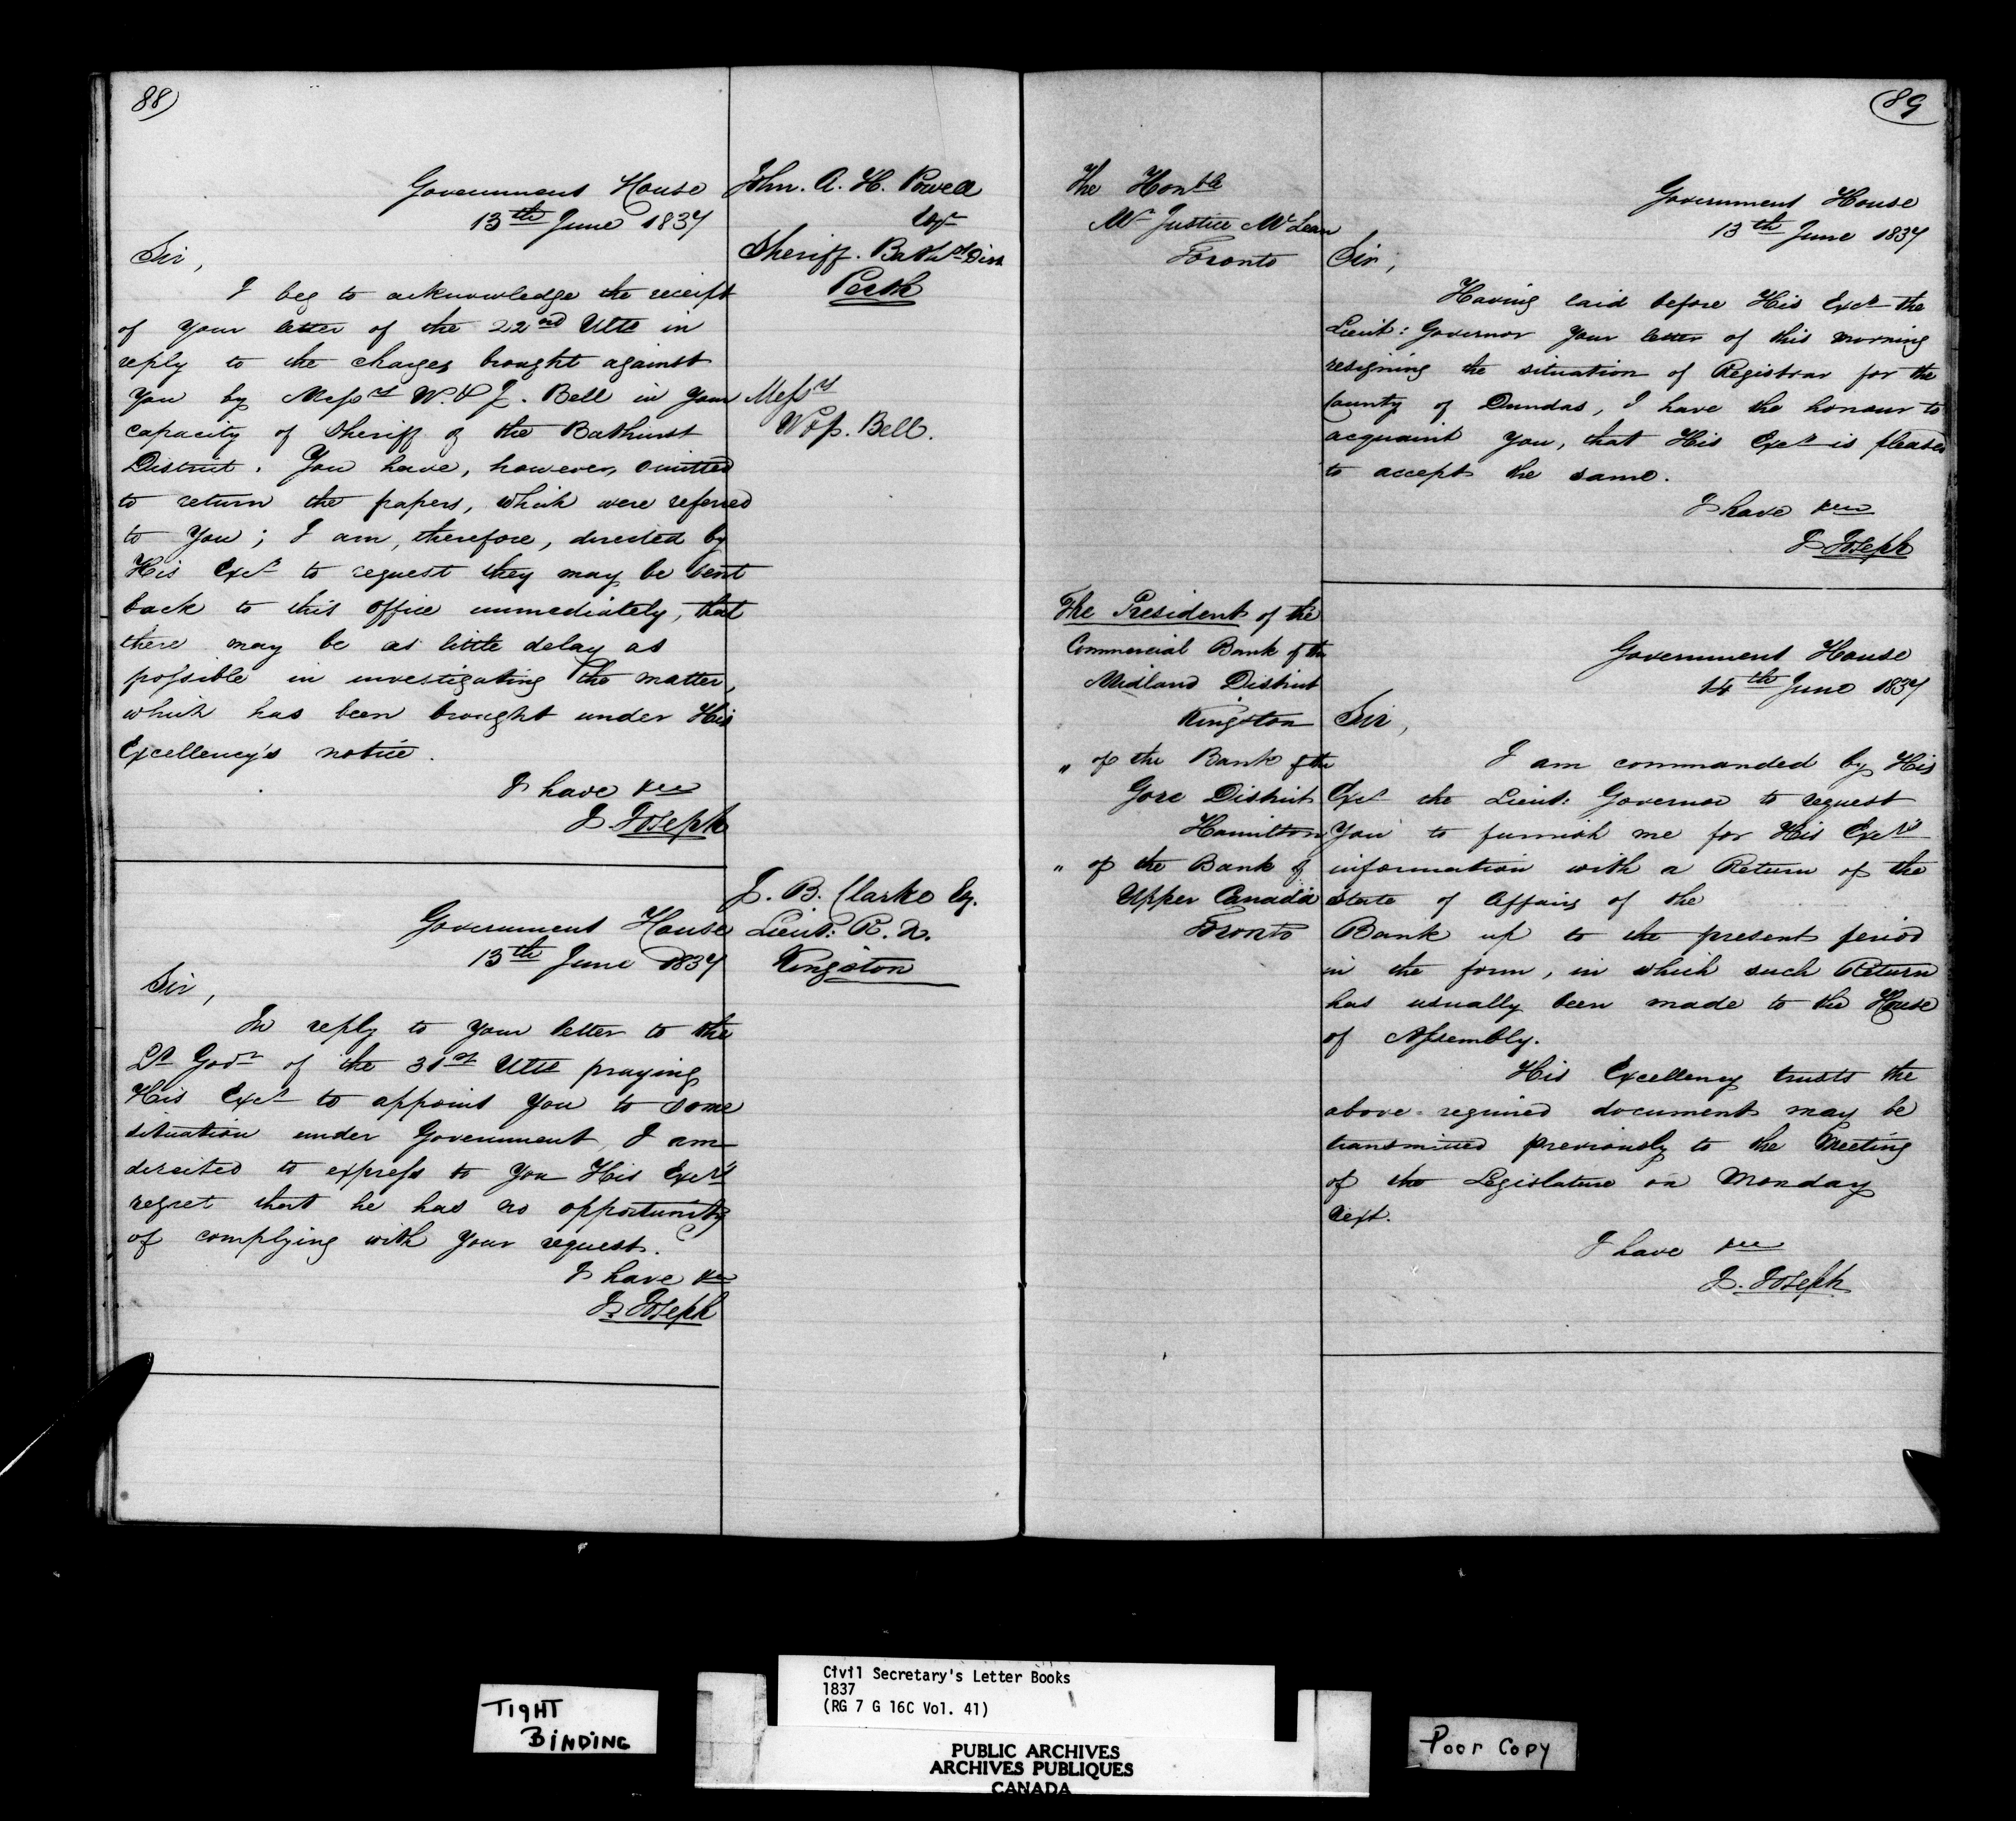 88)
Government House
13th June 1837
John. A. H. Powell
Esqr
Sheriff. Bathst Dist
Perth
Sir,
I beg to acknowledge the receipt
of your letter of the 22nd Ulto in
reply to the charges brought against
you by Messrs W. & J. Bell in your
capacity of Sheriff of the Bathurst
District. You have, however, omitted
to return the papers, which were referred
to You; I am, therefore, directed by
His Excy to request they may be sent
back to this Office immediately, that
there may be as little delay as
possible in investigating the matter,
which has been brought under His
Excellency's notice.
I have &c
J. Joseph
Messrs
W & J. Bell.
J. B. Clarke Esq.
Lieut: R. N.
Kingston
Government House
13th June 1837
Sir,
In reply to your letter to the
Lt Govr of the 31st Ulto praying
His Excy to appoint you to some
situation under Government, I am
directed to express to you His Excy's
regret that he has no opportunity
of complying with your request.
I have &c
J. Joseph
89
The Honble
Mr Justice McLean
Toronto
Government House
13th June 1837
Sir,
Having laid before His Excy the
Lieut: Governor your letter of this morning
resigning the situation of Registrar for the
County of Dundas, I have the honour to
acquaint you, that His Excy is pleased
to accept the same.
I have &c
J Joseph
The President of the
Commercial Bank of the
Midland District
Kingston
" of the Bank of the
Gore District
Hamilton
" of the Bank of
Upper Canada
Toronto
Government House
14th June 1837
Sir,
I am commanded by His
Excy the Lieut: Governor to request
You to furnish me for His Excy's
information with a Return of the
State of Affairs of the
Bank up to the present period
in the form, in which such Return
has usually been made to the House
of Assembly.
His Excellency trusts the
above required document may be
transmitted previously to the Meeting
of the Legislature on Monday
next.
I have &c
J. Joseph
TIGHT
BINDING
Civil Secretary's Letter Books
1837
(RG 7 G 16C Vol. 41)
PUBLIC ARCHIVES
ARCHIVES PUBLIQUES
CANADA
Poor Copy